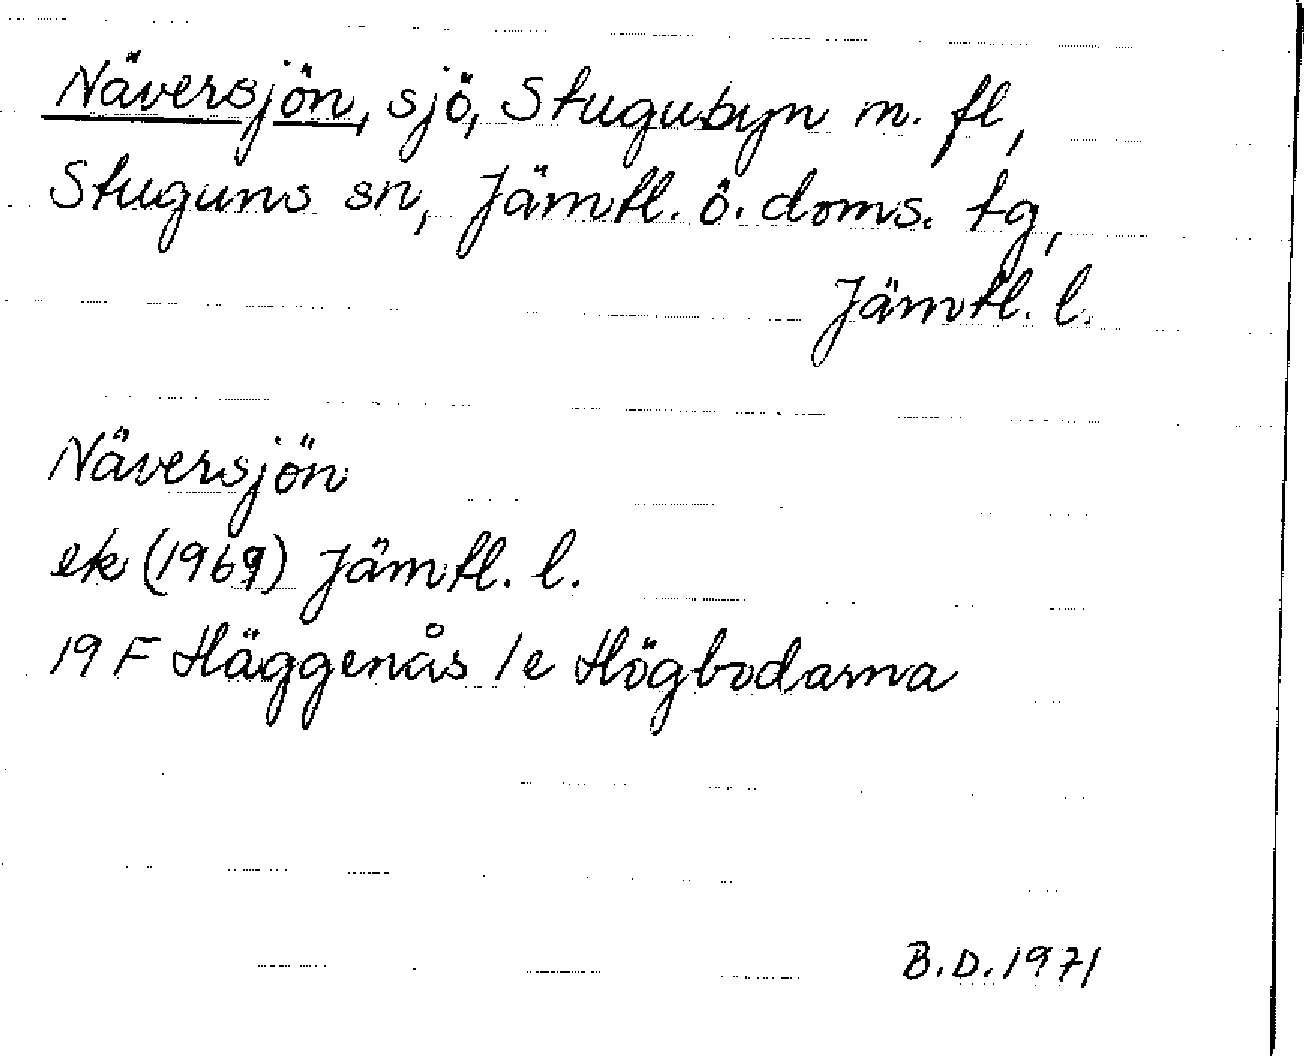 Näversjön, sjö, Stugubyn m. fl,
Stuguns sn, Jämtl. ö. doms. tg,
Jämtl. l.
Näversjön
ek (1969) Jämtl. l.
19 F Häggenås 1e Högbodarna
B.D. 1971